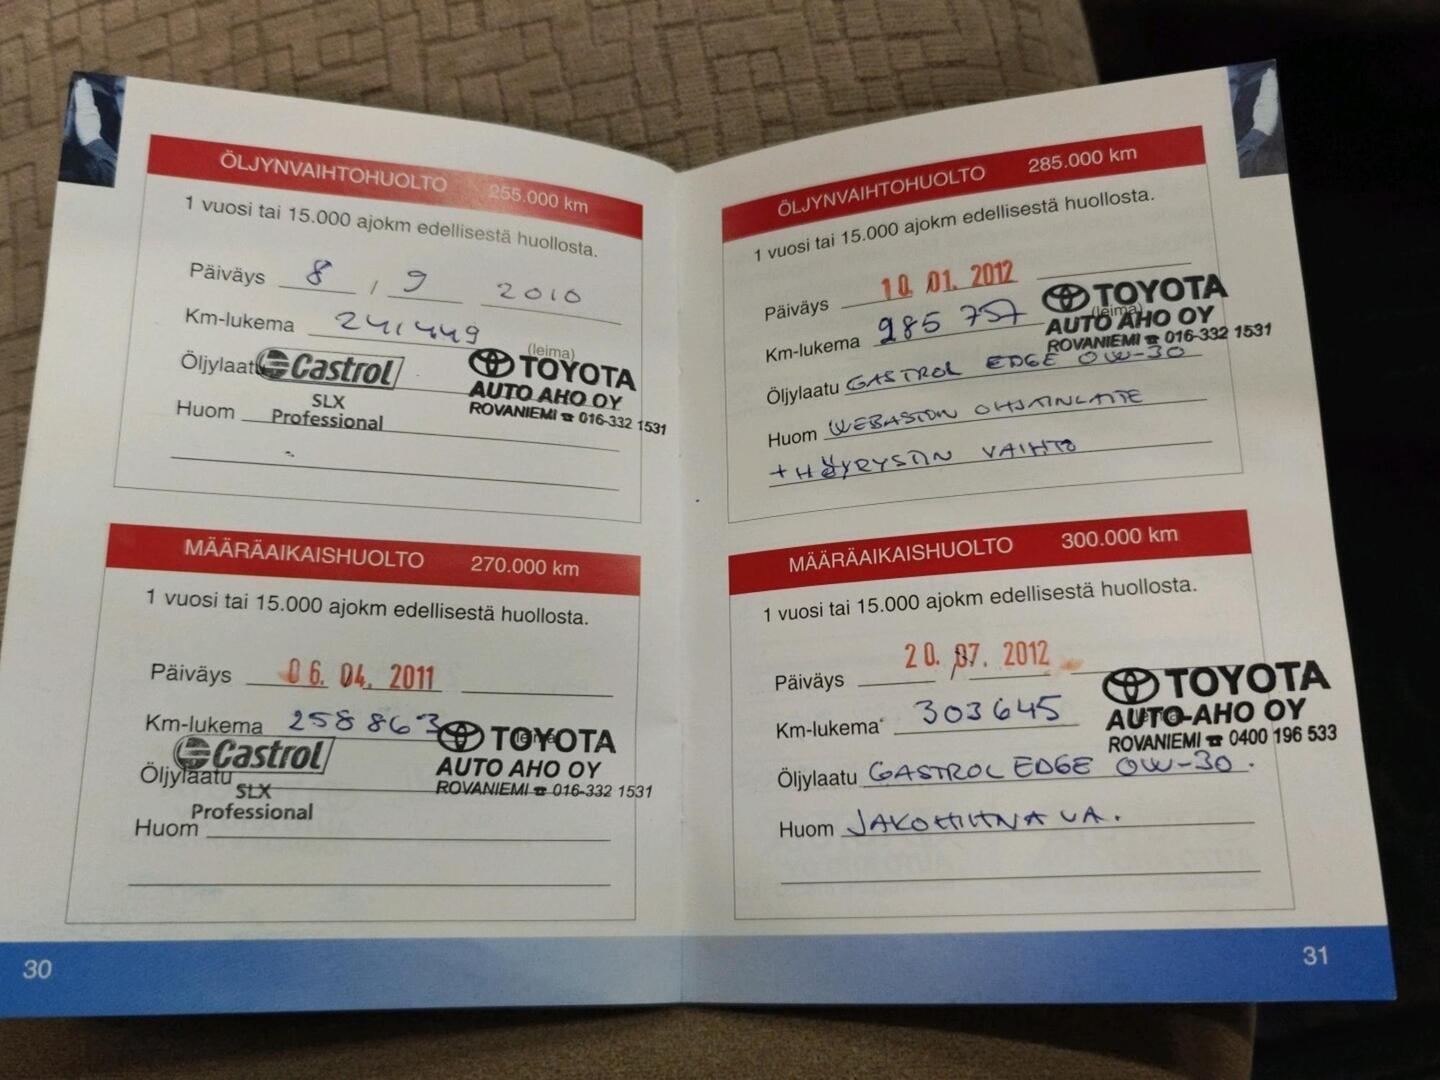 ÖLJYNVAIHTOHUOLTO 255.000 km
1 vuosi tai 15.000 ajokm edellisestä huollosta.
Päiväys 8 / 9 2010
Km-lukema 241449
(leima)
Öljylaatu Castrol
SLX
Professional
TOYOTA
AUTO AHO OY
ROVANIEMI ☎ 016-332 1531
Huom
MÄÄRÄAIKAISHUOLTO 270.000 km
1 vuosi tai 15.000 ajokm edellisestä huollosta.
Päiväys 06. 04. 2011
Km-lukema 258863
Öljylaatu Castrol
SLX
Professional
TOYOTA
AUTO AHO OY
ROVANIEMI ☎ 016-332 1531
Huom
30
ÖLJYNVAIHTOHUOLTO 285.000 km
1 vuosi tai 15.000 ajokm edellisestä huollosta.
Päiväys 10. 01. 2012
Km-lukema 285 757
(leima)
TOYOTA
AUTO AHO OY
ROVANIEMI ☎ 016-332 1531
Öljylaatu CASTROL EDGE 0W-30
Huom WEBASTON OHJAINLAITE
+ HÖYRYSTIN VAIHTO
MÄÄRÄAIKAISHUOLTO 300.000 km
1 vuosi tai 15.000 ajokm edellisestä huollosta.
Päiväys 20. 07. 2012
Km-lukema 303645
TOYOTA
AUTO-AHO OY
ROVANIEMI ☎ 0400 196 533
Öljylaatu CASTROL EDGE 0W-30.
Huom JAKOHIHNA VA.
31